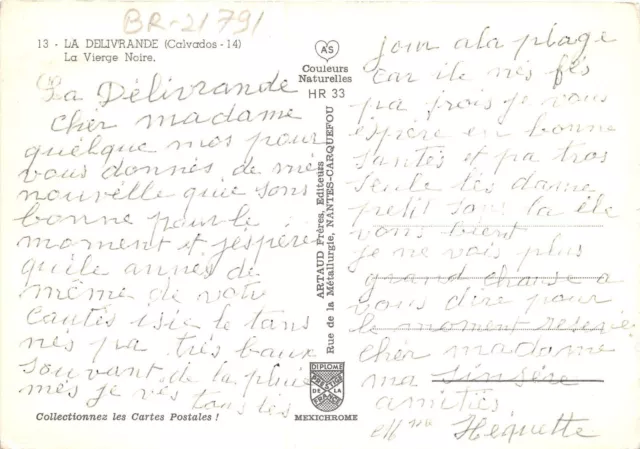 BR-21791
13 - LA DELIVRANDE (Calvados - 14)
La Vierge Noire.
La Délivrande
cher madame
quelque mos pour
vous donnés de mé
nouvelle quie sons
bonne pour le
moment et j'éspère
qu'ile annés de
même de votre
cautés isie le tans
nés pa trés baux
souvant de la pluie
més je vés tous lés
Collectionnez les Cartes Postales !
AS
Couleurs
Naturelles
HR 33
ARTAUD Frères, Editeurs
Rue de la Métallurgie, NANTES-CARQUEFOU
DIPLOME
PRESTIGE
DE LA
FRANCE
MEXICHROME
jour a la plage
car ile nés fés
pa frois je vous
éspère en bonne
santés et pa tros
seule lés dame
petit son la éle
vons bient
je ne vais plus
grand chause a
vous dire pour
le moment resevé
chér madame
ma sinsère
amitiés
Mme Hequette